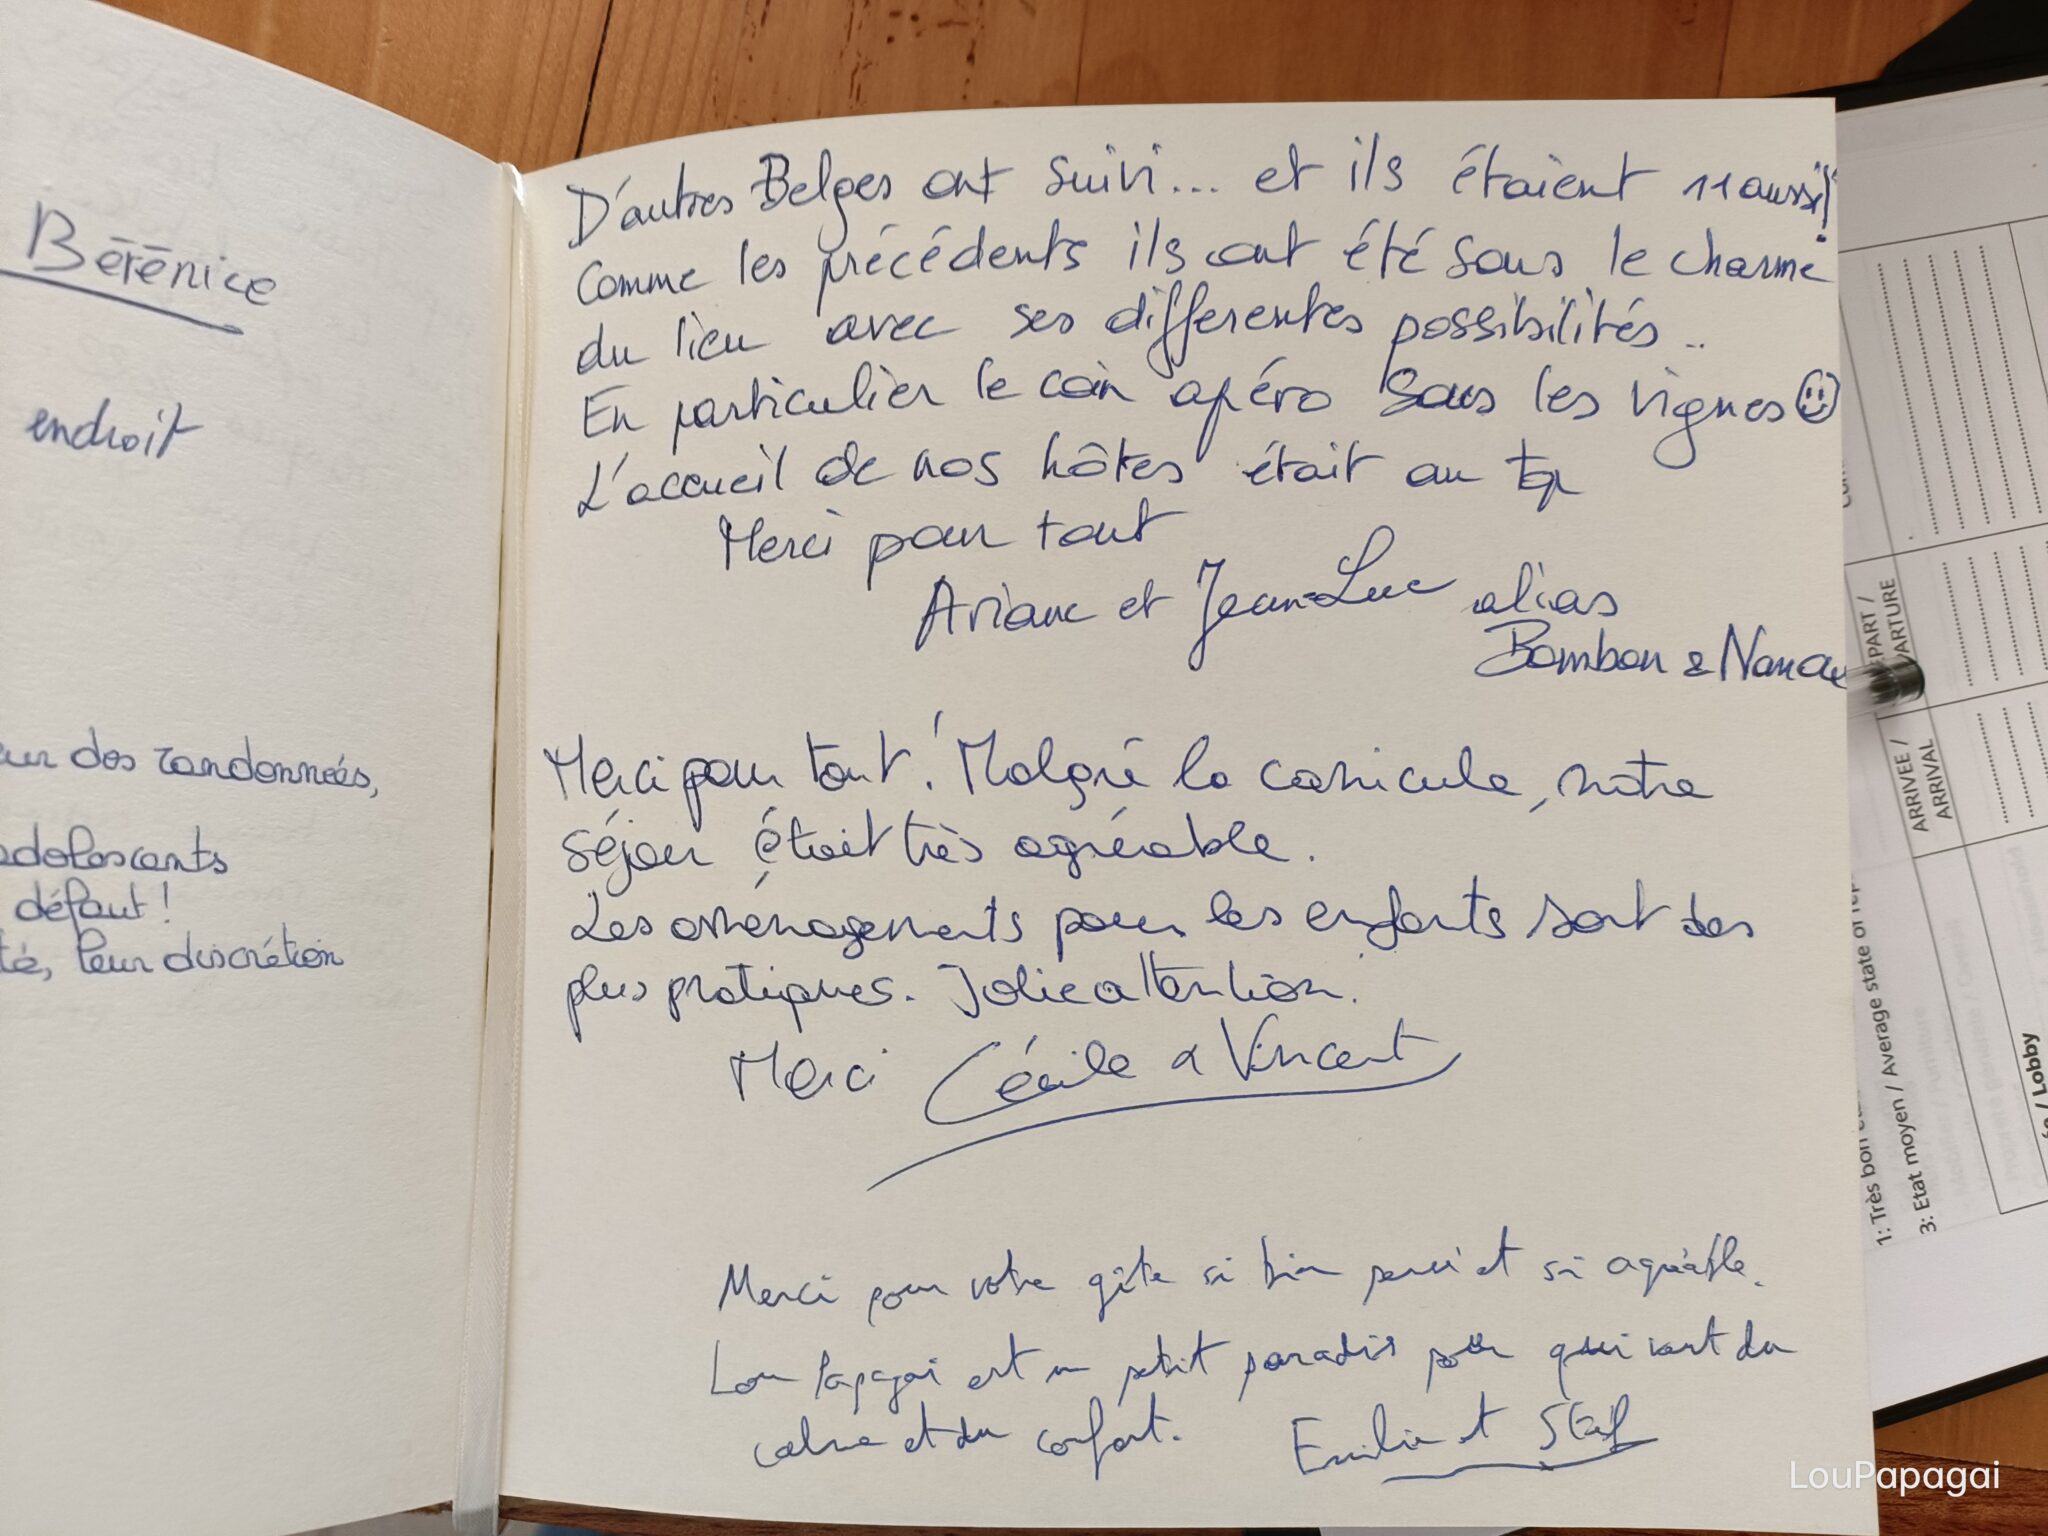 Bérénice
endroit
des randonneés,
adolescents
défaut !
leur discrétion
D'autres Belges ont suivi... et ils étaient 11 aussi!
Comme les précédents ils ont été sous le charme
du lieu avec ses différentes possibilités..
En particulier le coin apéro sous les vignes ☺
L'accueil de nos hôtes était au top
Merci pour tout
Ariane et Jean-Luc alias
Bombon &
Merci pour tout ! Malgré la canicule, notre
séjour était très agréable.
Les aménagements pour les enfants sont des
plus pratiques. Jolie attention.
Merci Cécile & Vincent
Merci pour votre gîte si bien pensé et si agréable.
Lou Papagai est un petit paradis pour qui veut du
calme et du confort. Emilie et Stef
PART /
ARTURE
ARRIVEE /
ARRIVAL
1: Très bon
/ Average state of
3: Etat moyen
/ Lobby
LouPapagai